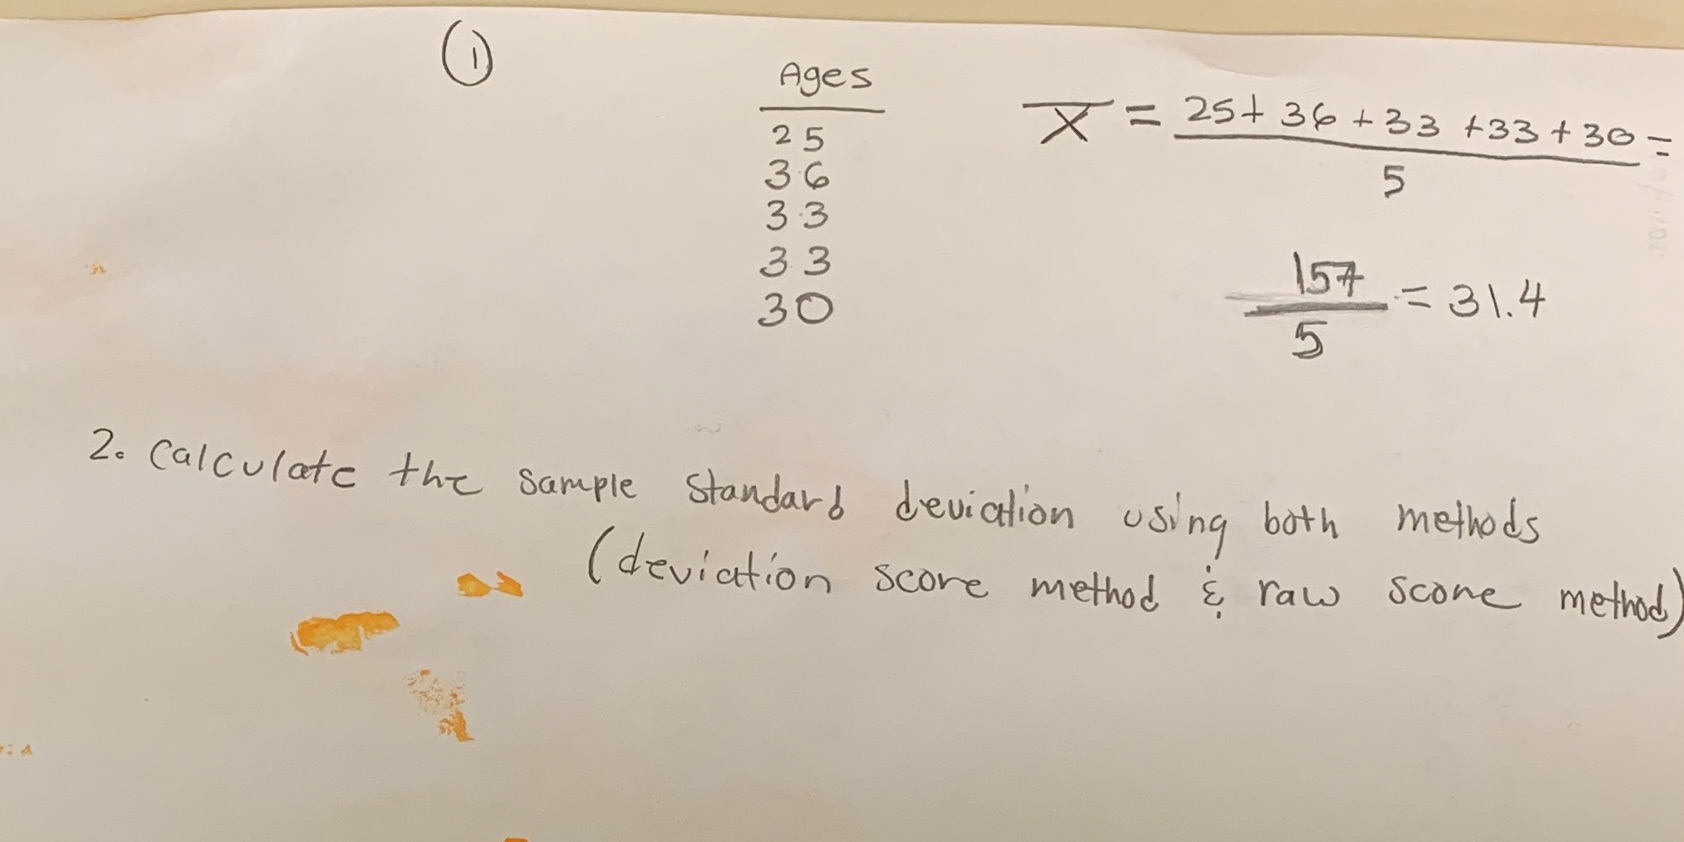 ①
Ages
25
36
33
33
30
X̄ = 25+ 36 + 33 + 33 + 30 =
5
157
5
= 31.4
2. Calculate the sample standard deviation using both methods
(deviation score method & raw score method)